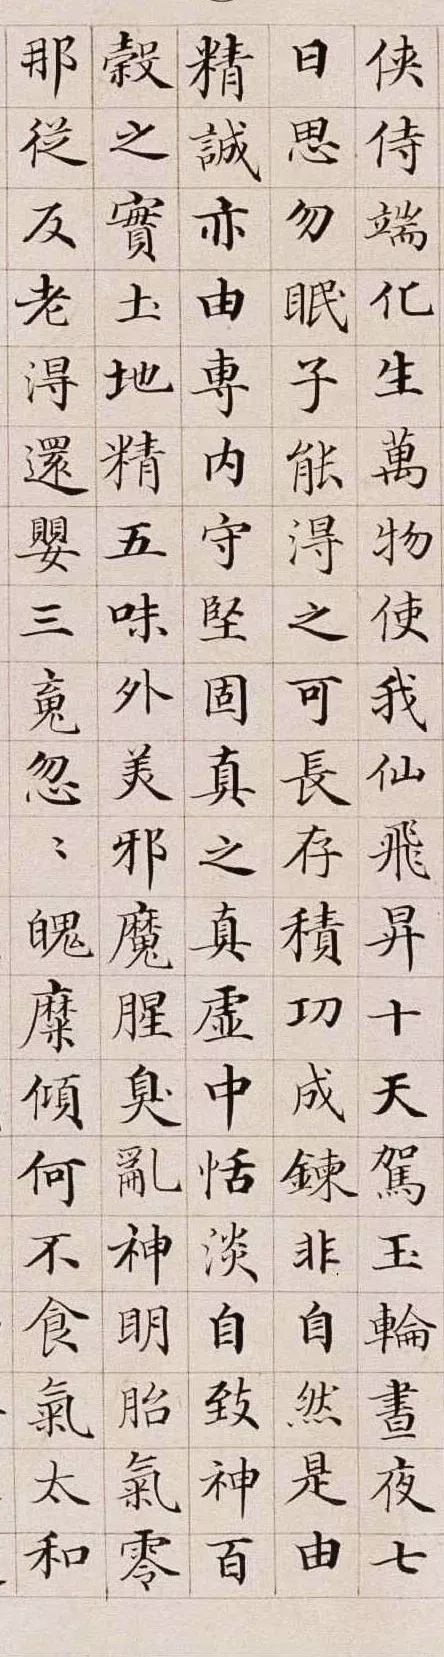 侠侍端化生萬物使我仙飛昇十天駕玉輪晝夜七
日思勿眠子能淂之可長存積功成鍊非自然是由
精誠亦由專内守堅固真之真虛中恬淡自致神百
穀之實土地精五味外美邪魔腥臭亂神明胎氣零
那從反老淂還嬰三䰟忽〻魄糜傾何不食氣太和